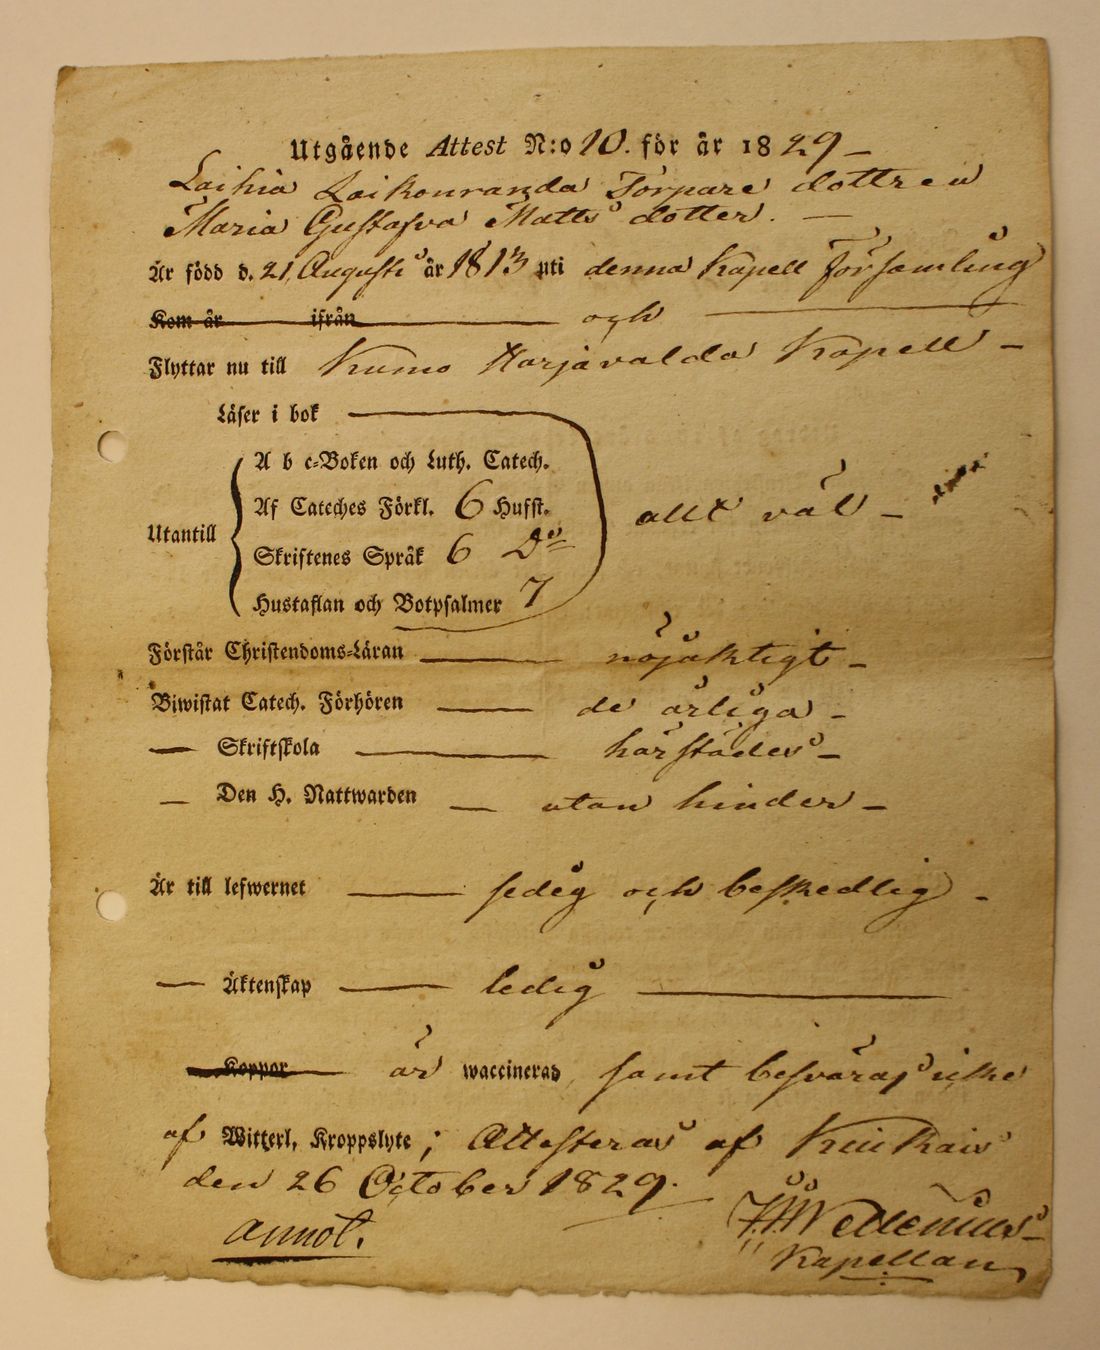 Utgående Attest N:o 10. för år 1829 –
Laihia Laikonranda Torpare dottren
Maria Gustafva Matts dotter. –
Är född d. 21, Augusti år 1813 uti denna Kapell Församling
Kom år ifrån och
Flyttar nu till Kumo Harjavalda Kapell –
Läser i bok
A b c-Boken och Luth. Catech.
Af Cateches Förkl. 6 Hufst.
Utantill allt väl –
Skriftenes Språk 6 Do
Hustaflan och Botpsalmer 7
Förstår Christendoms-Läran nöjaktigt –
Biwistat Catech. Förhören de årliga –
– Skriftskola härstädes –
– Den H. Nattwarden – utan hinder –
Är till lefwernet sedig och beskedlig –
– Äktenskap ledig
Koppor är waccinerad samt besväras icke
af Witterl. Kroppslyte; Attesteras af Kiukais
den 26 October 1829.
annot. Wellenius
Kapellan